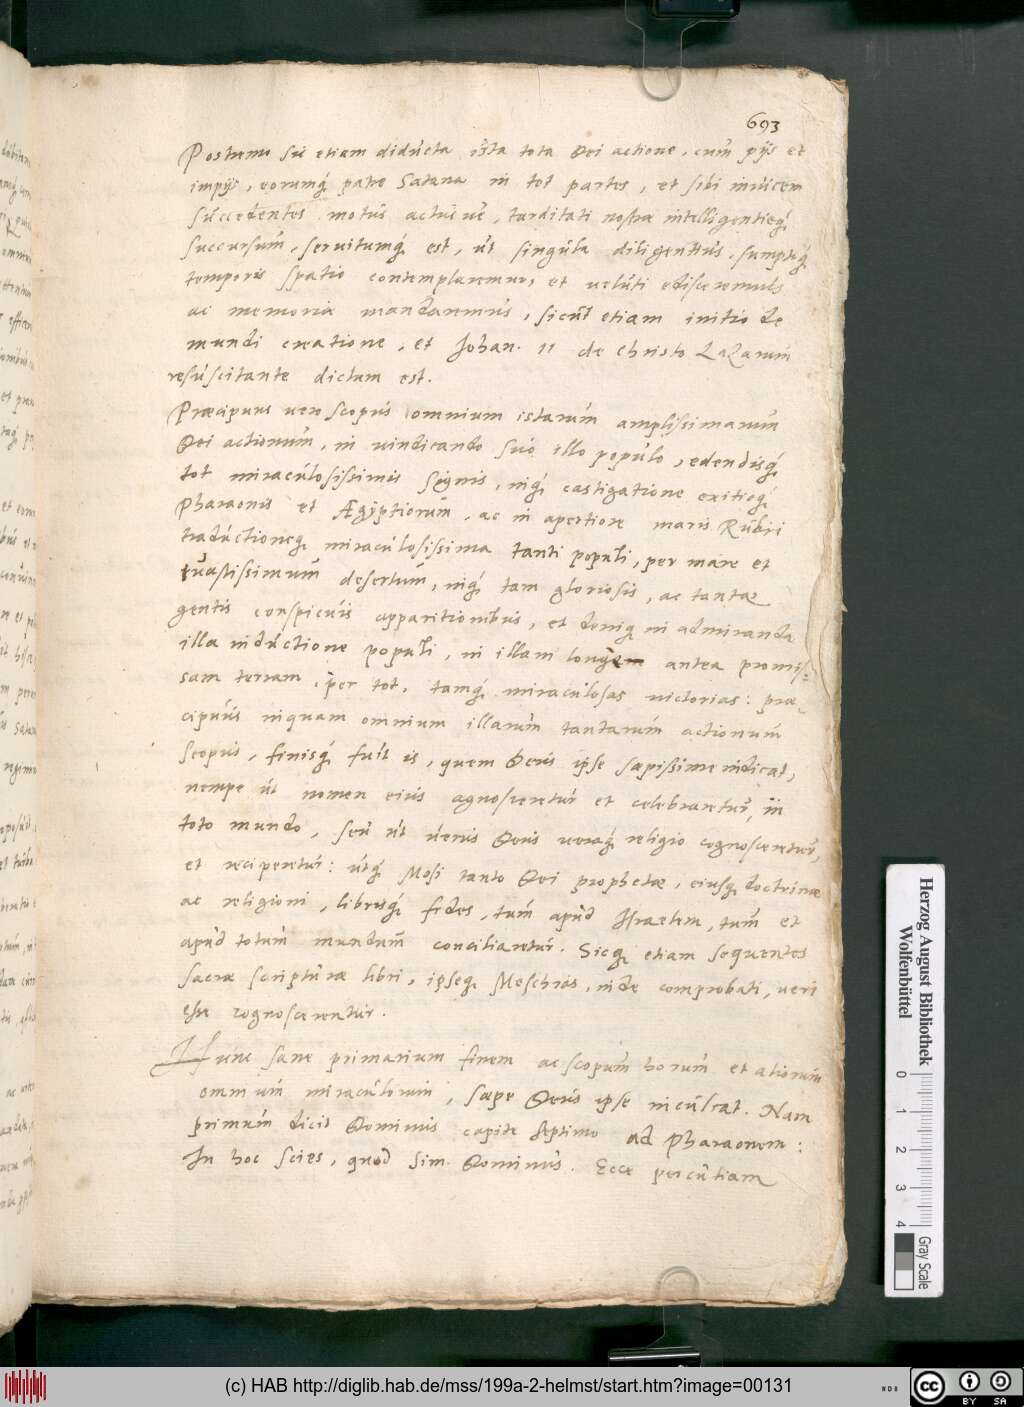 693
Postremo sic etiam diducta ista tota Dei actione, cum pijs et
impijs, eorumq́ patre Satana in tot partes, et sibi invicem
succedentes motus actusve, tarditati nostrae intelligentieq́
succursum, servitumq́ est, ut singula diligentius, sumptiq́
temporis spatio contemplaremur, et veluti edisceremus
ac memoria mandaremus, sicut etiam initio de
mundi creatione, et Johan. 11 de Christo Lazarum
resuscitante dictum est.
Praecipuus vero scopus omnium istarum amplissimarum
Dei actionum, in vindicando suo illo populo, edendisq́
tot miraculosissimis signis, inq́ castigatione exitioq́
Pharaonis et Ægyptiorum, ac in apertiore maris Rubri
traductioneq́ miraculosissima tanti populi, per mare et
vastissimum desertum, inq́ tam gloriosis, ac tantae
gentis conspicuis apparitionibus, et deniq́ in admiranda
illa inductione populi, in illam antea promis=
sam terram, per tot, tamq́ miraculosas victorias: prae-
cipuus inquam omnium illarum tantarum actionum
scopus, finisq́ fuit is, quem Deus ipse saepissime indicat,
nempe ut nomen eius agnosceretur et celebraretur, in
toto mundo, seu ut verus Deus veraq́ religio cognosceretur,
et reciperetur: utq́ Mosi tanto Dei prophetae, eiusq́ doctrinae
ac religioni, librisq́ fides, tum apud Israelem, tum et
apud totum mundum conciliaretur. Sicq́ etiam sequentes
sacrae scripturae libri, ipseq́ Meschias, inde comprobati, veri
esse cognoscerentur.
Hunc sane primarium finem ac scopum horum et aliorum
omnium miraculorum, saepe Deus ipse inculcat. Nam
primum dicit Dominus capite septimo ad Pharaonem:
In hoc scies, quod sim Dominus. Ecce percutiam
Herzog August Bibliothek
Wolfenbüttel
0 1 2 3 4
Gray Scale
(c) HAB http://diglib.hab.de/mss/199a-2-helmst/start.htm?image=00131
cc BY SA